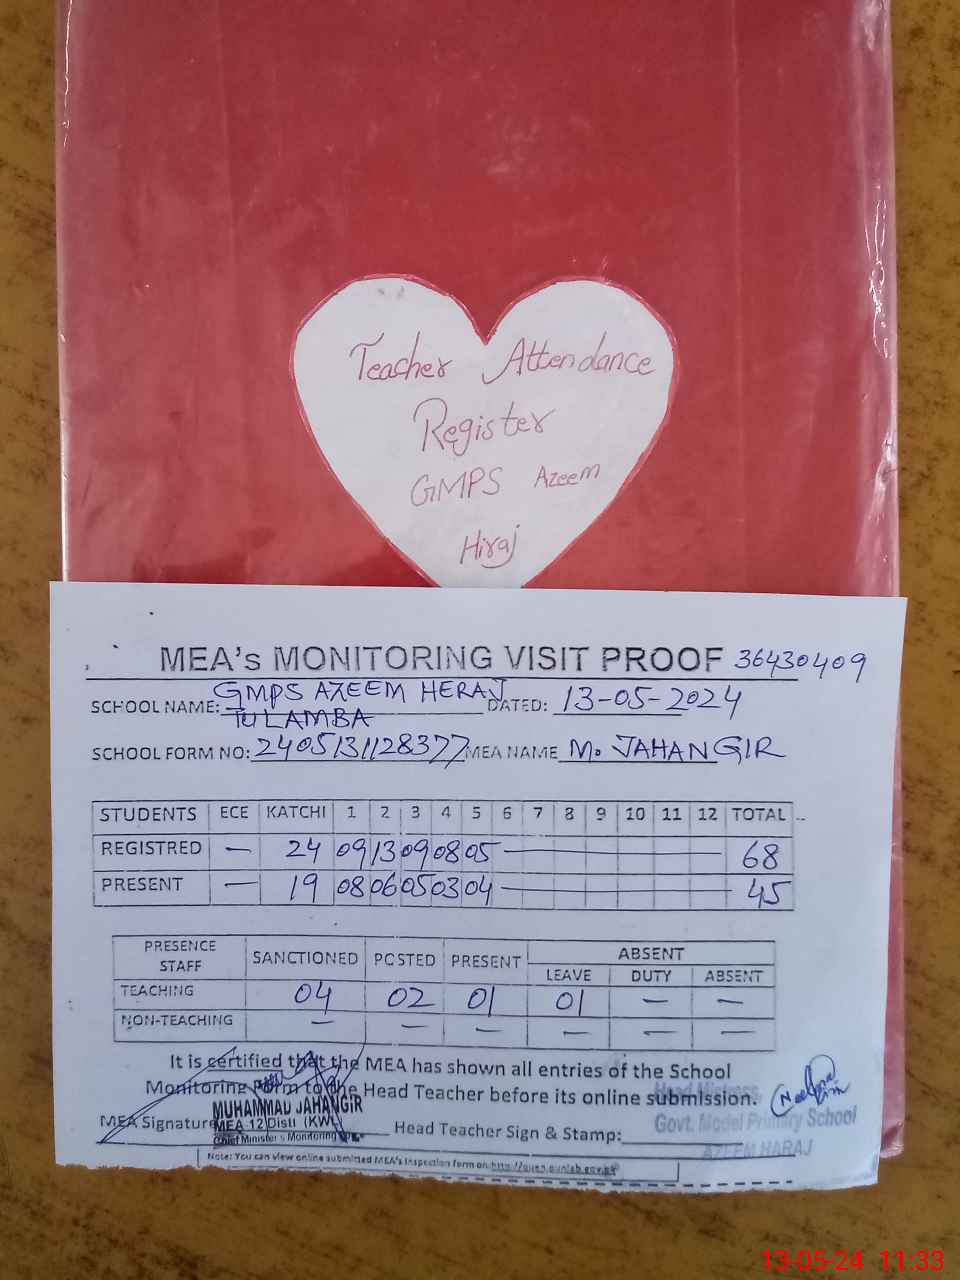 Teacher Attendance
Register
GMPS Azeem
Hiraj
MEA's MONITORING VISIT PROOF 36430409
SCHOOL NAME: GMPS AZEEM HERAJ DATED: 13-05-2024
TULAMBA
SCHOOL FORM NO: 2405131128377 MEA NAME M. JAHANGIR
STUDENTS ECE KATCHI 1 2 3 4 5 6 7 8 9 10 11 12 TOTAL
REGISTRED — 24 09 13 09 08 05 — 68
PRESENT — 19 08 06 05 03 04 — 45
PRESENCE STAFF SANCTIONED POSTED PRESENT ABSENT
LEAVE DUTY ABSENT
TEACHING 04 02 01 01 — —
NON-TEACHING — — — — — —
It is certified that the MEA has shown all entries of the School
Monitoring Form to the Head Teacher before its online submission.
Head Mistress
MUHAMMAD JAHANGIR
MEA Signature MEA 12 Distt (KWL) Head Teacher Sign & Stamp: Govt. Model Primary School
Chief Minister's Monitoring AZEEM HARAJ
Note: You can view online submitted MEA's inspection form on http://open.punjab.gov.pk
13-05-24 11:33